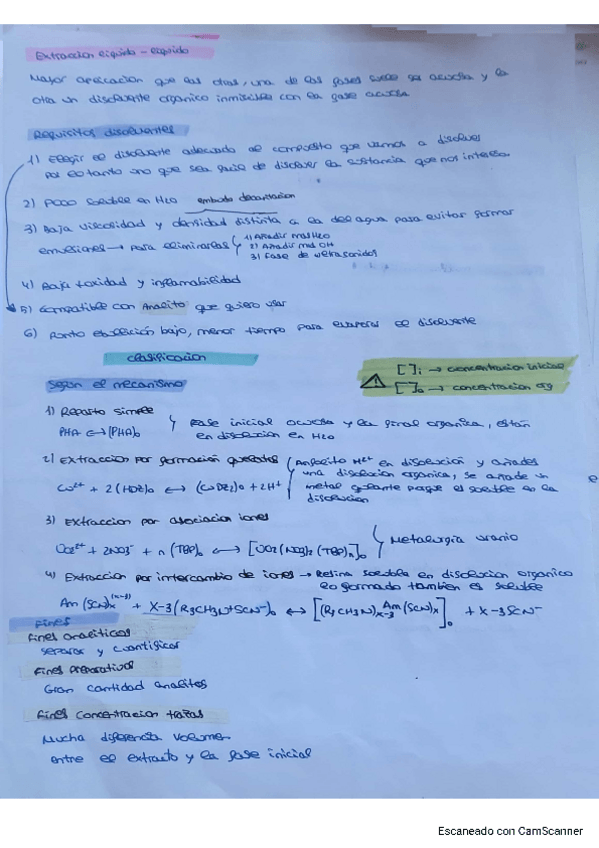 Extraccion liquido - liquido
Mayor aplicación que las otras, una de las fases suele ser acuosa y la
otra un disolvente organico inmiscible con la fase acuosa
Requisitos disolventes
1) Elegir el disolvente adecuado al compuesto que vamos a disolver
por lo tanto uno que sea de disolver la sustancia que nos interesa.
2) Poco soluble en H2O embudo decantacion
3) Baja viscosidad y densidad distinta a la del agua para evitar formar
emulsiones → para eliminarlas
1) Añadir mas H2O
2) Añadir mas OH
3) Fase de ultrasonidos
4) Baja toxidad y inflamabilidad
5) Compatible con Analito que quiero usar
6) Punto ebullición bajo, menor tiempo para evaporar el disolvente
clasificacion
[ ]i → concentracion inicial
[ ]o → concentracion org
Segun el mecanismo
1) Reparto simple
PHA ↔ (PHA)o
Fase inicial acuosa y la final organica, están
en disolucion en H2O
2) Extraccion por formación quelatos
Cu²⁺ + 2(HDz)o ↔ (CuDz2)o + 2H⁺
en disolución y añades
una disolucion organica, se añade un
metal quelante porque el soluble en la
disolucion
3) Extraccion por asociacion iones
UO2²⁺ + 2NO3⁻ + n(TBP)o ↔ [UO2(NO3)2(TBP)n]o
Metalurgia uranio
4) Extraccion por intercambio de iones → Resina soluble en disolucion organica
lo formado tambien es soluble
Am(SCN)x⁽ˣ⁻³⁾ + X-3(R3CH3N⁺SCN⁻)o ↔ [(R3CH3N)x-3 Am(SCN)x]o + X-3SCN⁻
Fines
Fines analiticos
separar y cuantificar
Fines preparativos
Gran cantidad analitos
Fines concentracion trazas
Mucha diferencia volumen
entre el extracto y la fase inicial
Escaneado con CamScanner